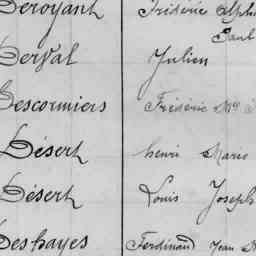 Deroyant Frédéric Alph
Paul
Derval Julien
Descormiers Frédéric
Désert henri Marie
Désert Louis Joseph
Deshayes Ferdinand Jean